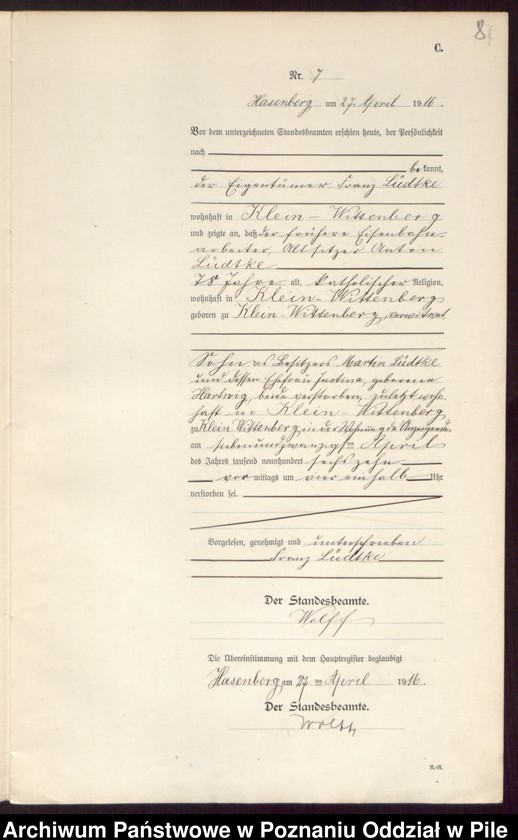 8
C.
Nr. 7
Hasenberg am 27. April 1916.
Vor dem unterzeichneten Standesbeamten erschien heute, der Persönlichkeit
nach
bekannt,
der Eigentümer Franz Lüdtke
wohnhaft in Klein-Wittenberg
und zeigte an, daß der frühere Eisenbahn-
arbeiter, Altsitzer Anton
Lüdtke
78 Jahre alt, katholischer Religion,
wohnhaft in Klein-Wittenberg
geboren zu Klein-Wittenberg, verwitwet,
Sohn des Besitzers Martin Lüdtke
und dessen Ehefrau Justina, geborener
Hartwig, beide verstorben, zuletzt wohn-
haft in Klein-Wittenberg
zu Klein Wittenberg, in der Wohnung des Anzeigenden
am siebenundzwanzigsten April
des Jahres tausend neunhundert sechszehn
vormittags um vier einhalb Uhr
verstorben sei.
Vorgelesen, genehmigt und unterschrieben
Franz Lüdtke
Der Standesbeamte.
Wolff
Die Übereinstimmung mit dem Hauptregister beglaubigt
Hasenberg am 27ten April 1916.
Der Standesbeamte.
Wolff
Archiwum Państwowe w Poznaniu Oddział w Pile